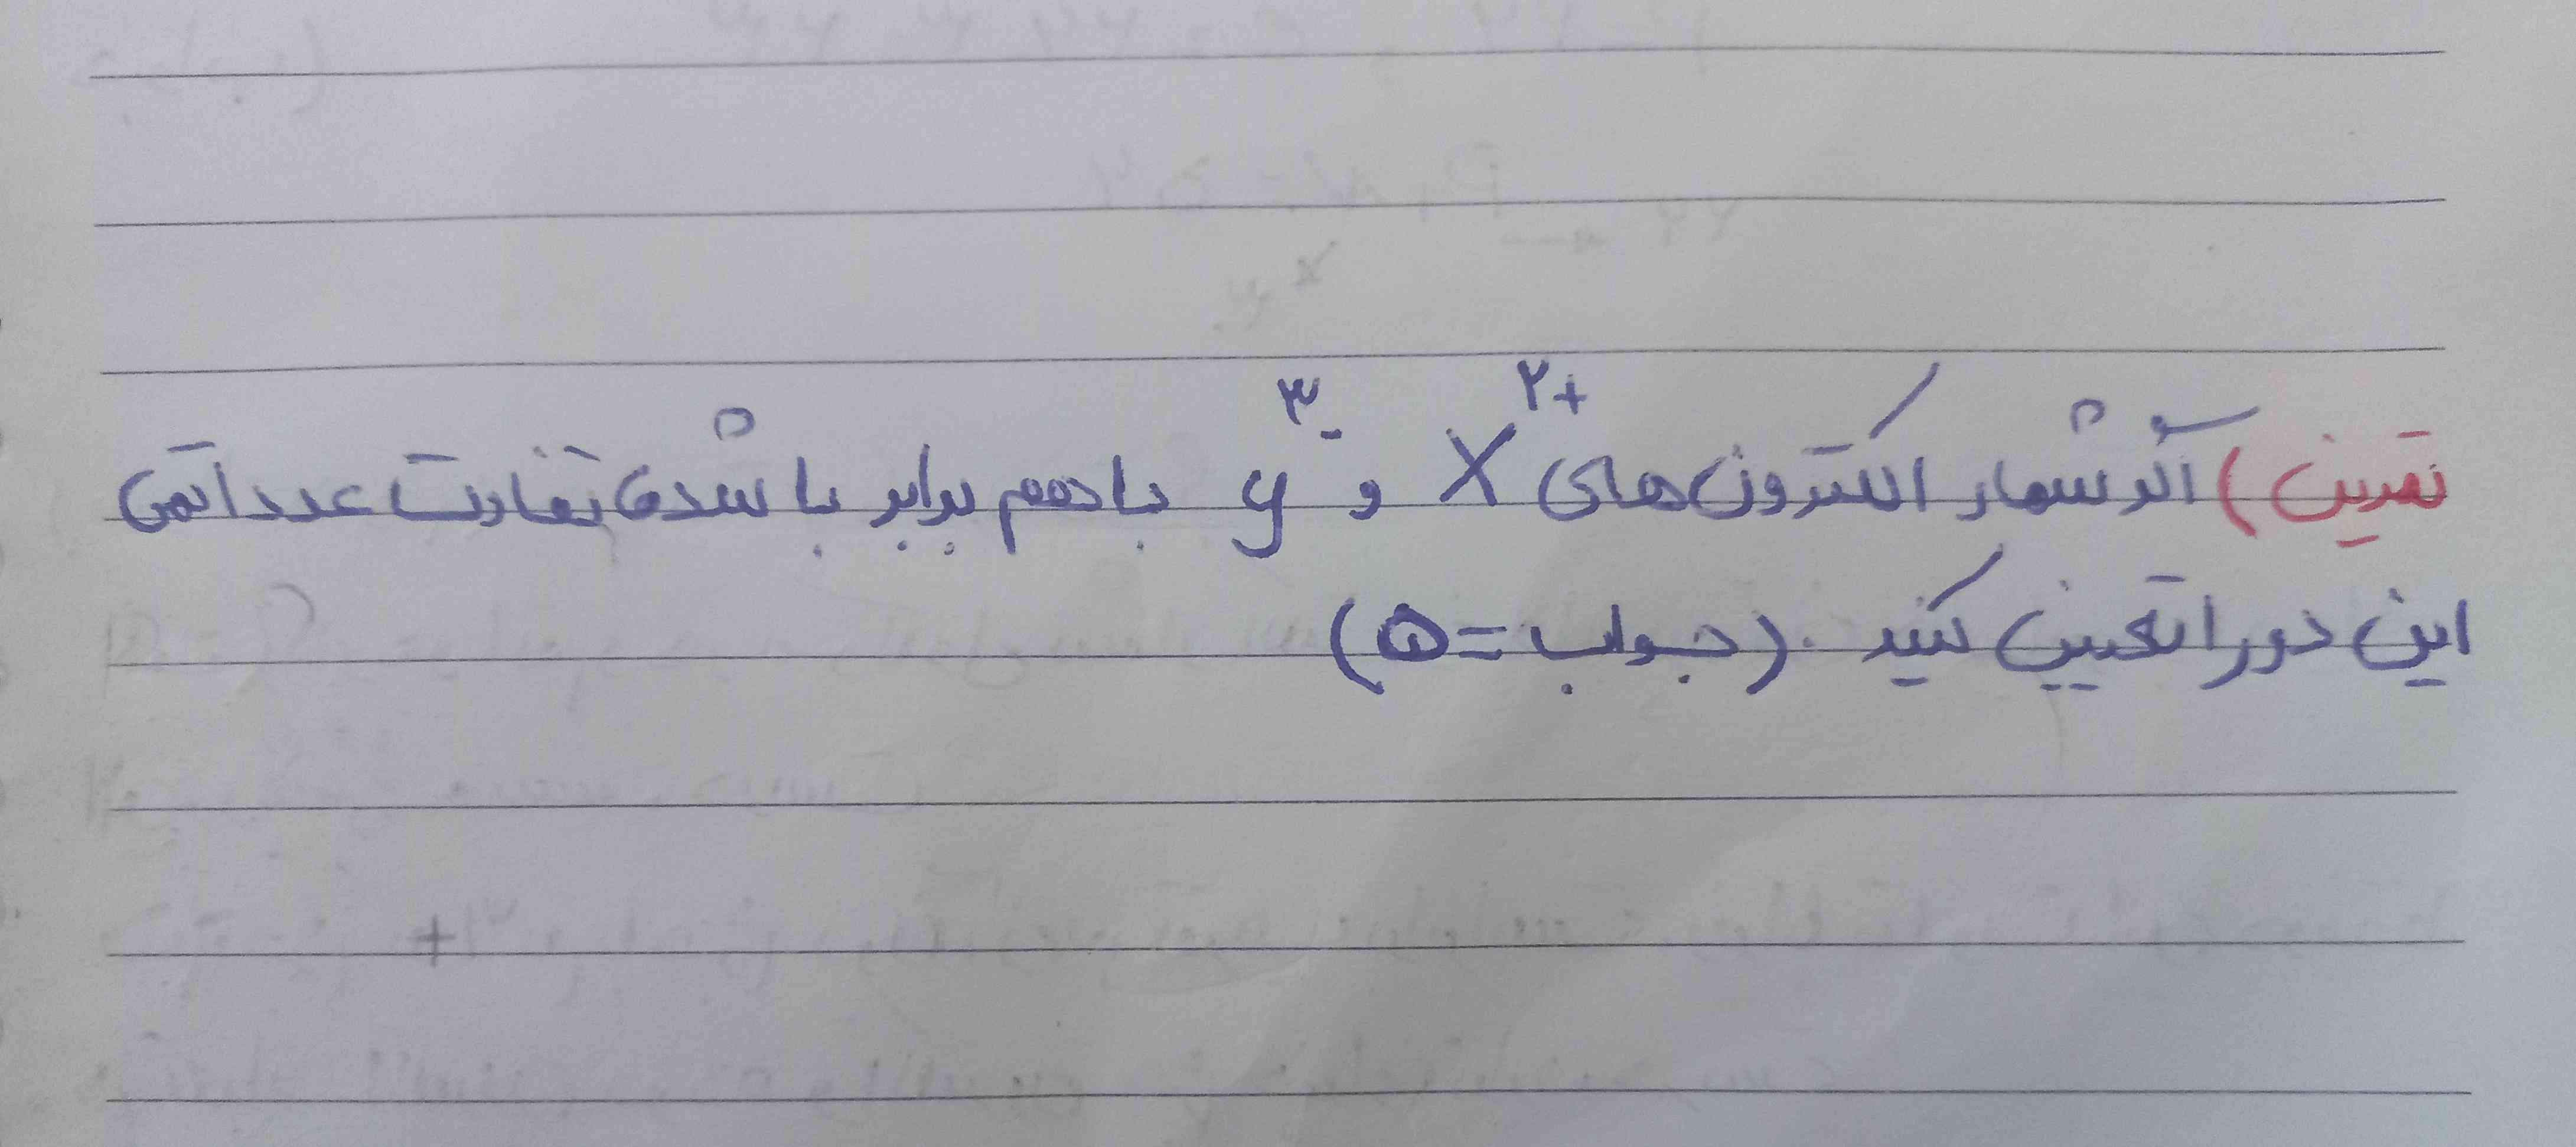 تمرین) اگر شمار الکترون‌های X²⁺ و y³⁻ باهم برابر باشد، تفاوت عدد اتمی
این دو را تعیین کنید. (جواب = ۵)